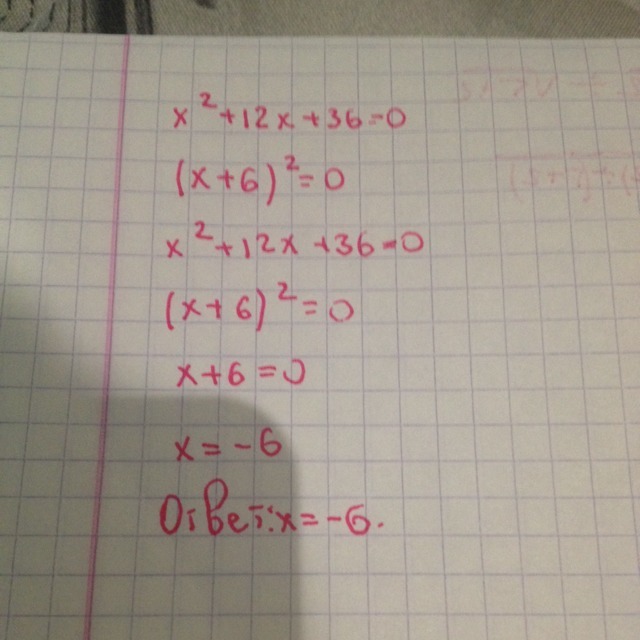 x²+12x+36=0
(x+6)²=0
x²+12x+36=0
(x+6)²=0
x+6=0
x=-6
Ответ: x=-6.